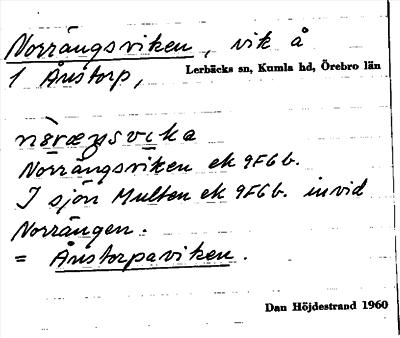 Norrängsviken, vik å
1 Ånstorp,
Lerbäcks sn, Kumla hd, Örebro län
Norrängsviken ek 9F6b.
I sjön Multen ek 9F6b. invid
Norrängen.
= Ånstorpaviken.
Dan Höjdestrand 1960